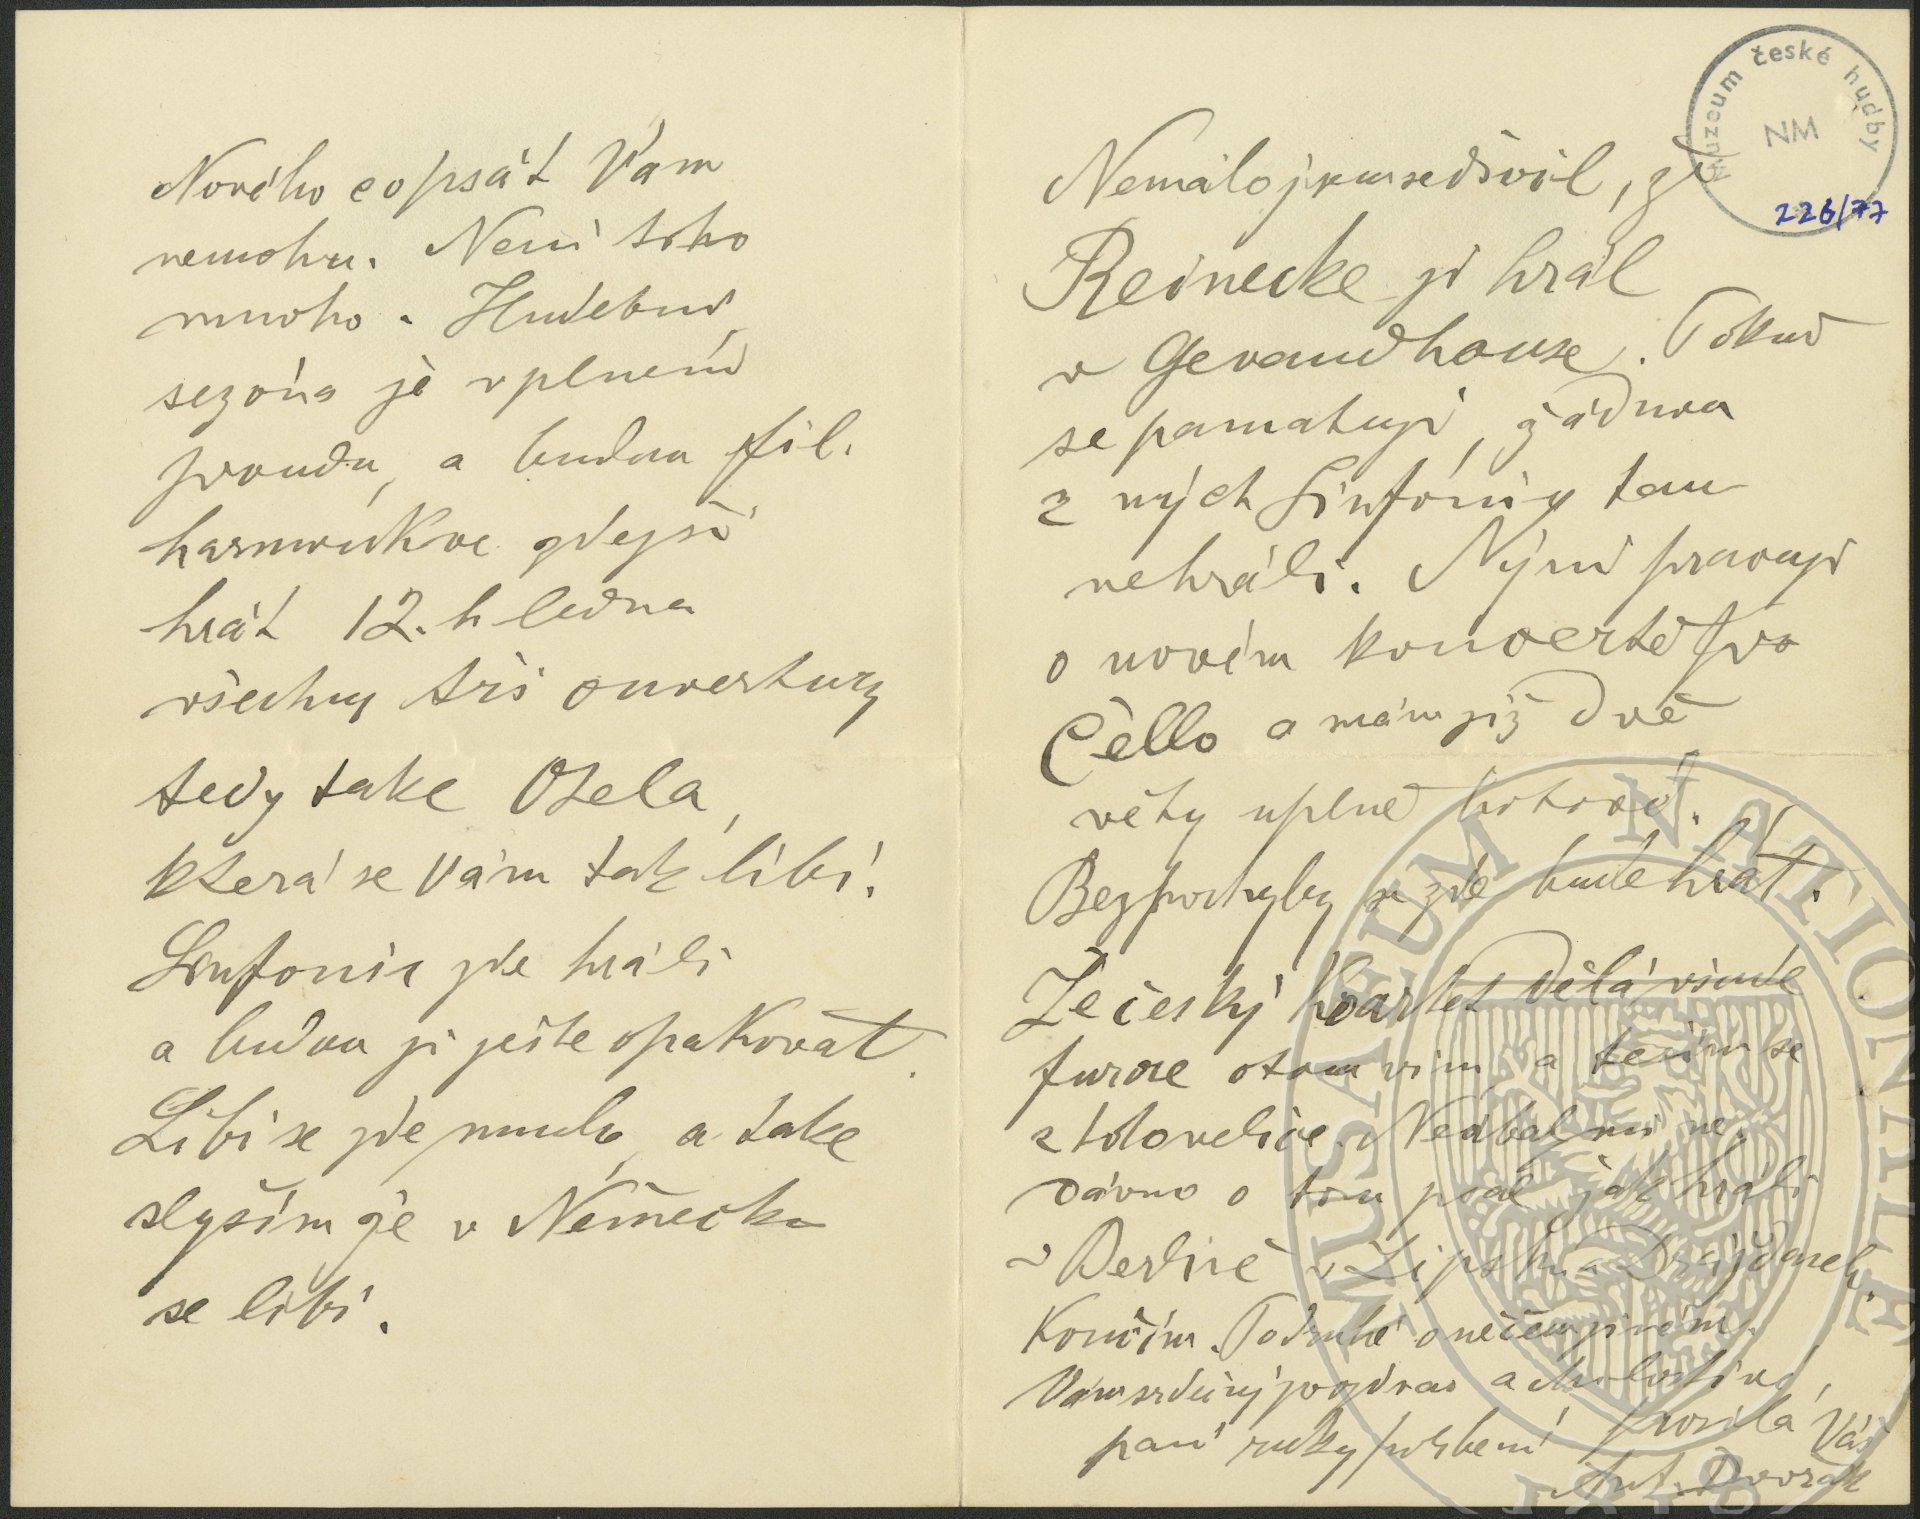 Nového co psát Vám
nemohu. Není toho
mnoho. Hudební
sezóna je v plném
proudu, a budou fil.
harmonikové zdejší
hrát 12.h ledna
všechny tři ouvertury
tedy take Otela,
která se Vám tak libí.
Sinfonie zde hráli
a budou ji ješte opakovat.
Líbi se zde mnoho, a take
slyším že v Německu
se libí.
Nemálo jsem se divil, že
Reinecke ji hrál
v Gevandhause. Pokud
se pamatuji, žádnou
z mých Sinfónii tam
nehráli. Nýní pracuji
o novém koncertě pro
Čello a mám již dvě
věty uplně hotové.
Bezpochyby se zde bude hrát.
Že český kvartet dělá všude
furore o tom vím a těším se
z toho velice. Nedbal mi ne-
dávno o tom psal jak hráli
v Berlíně v Lipsku a Drážďanech.
Končím. Podruhé o něčem jiném.
Vám srdečný pozdrav a milostivé
paní ruky políbení posílá Váš
Ant. Dvořák
Muzeum české hudby
NM
226/77
MUSAEUM NATIONALE
1818